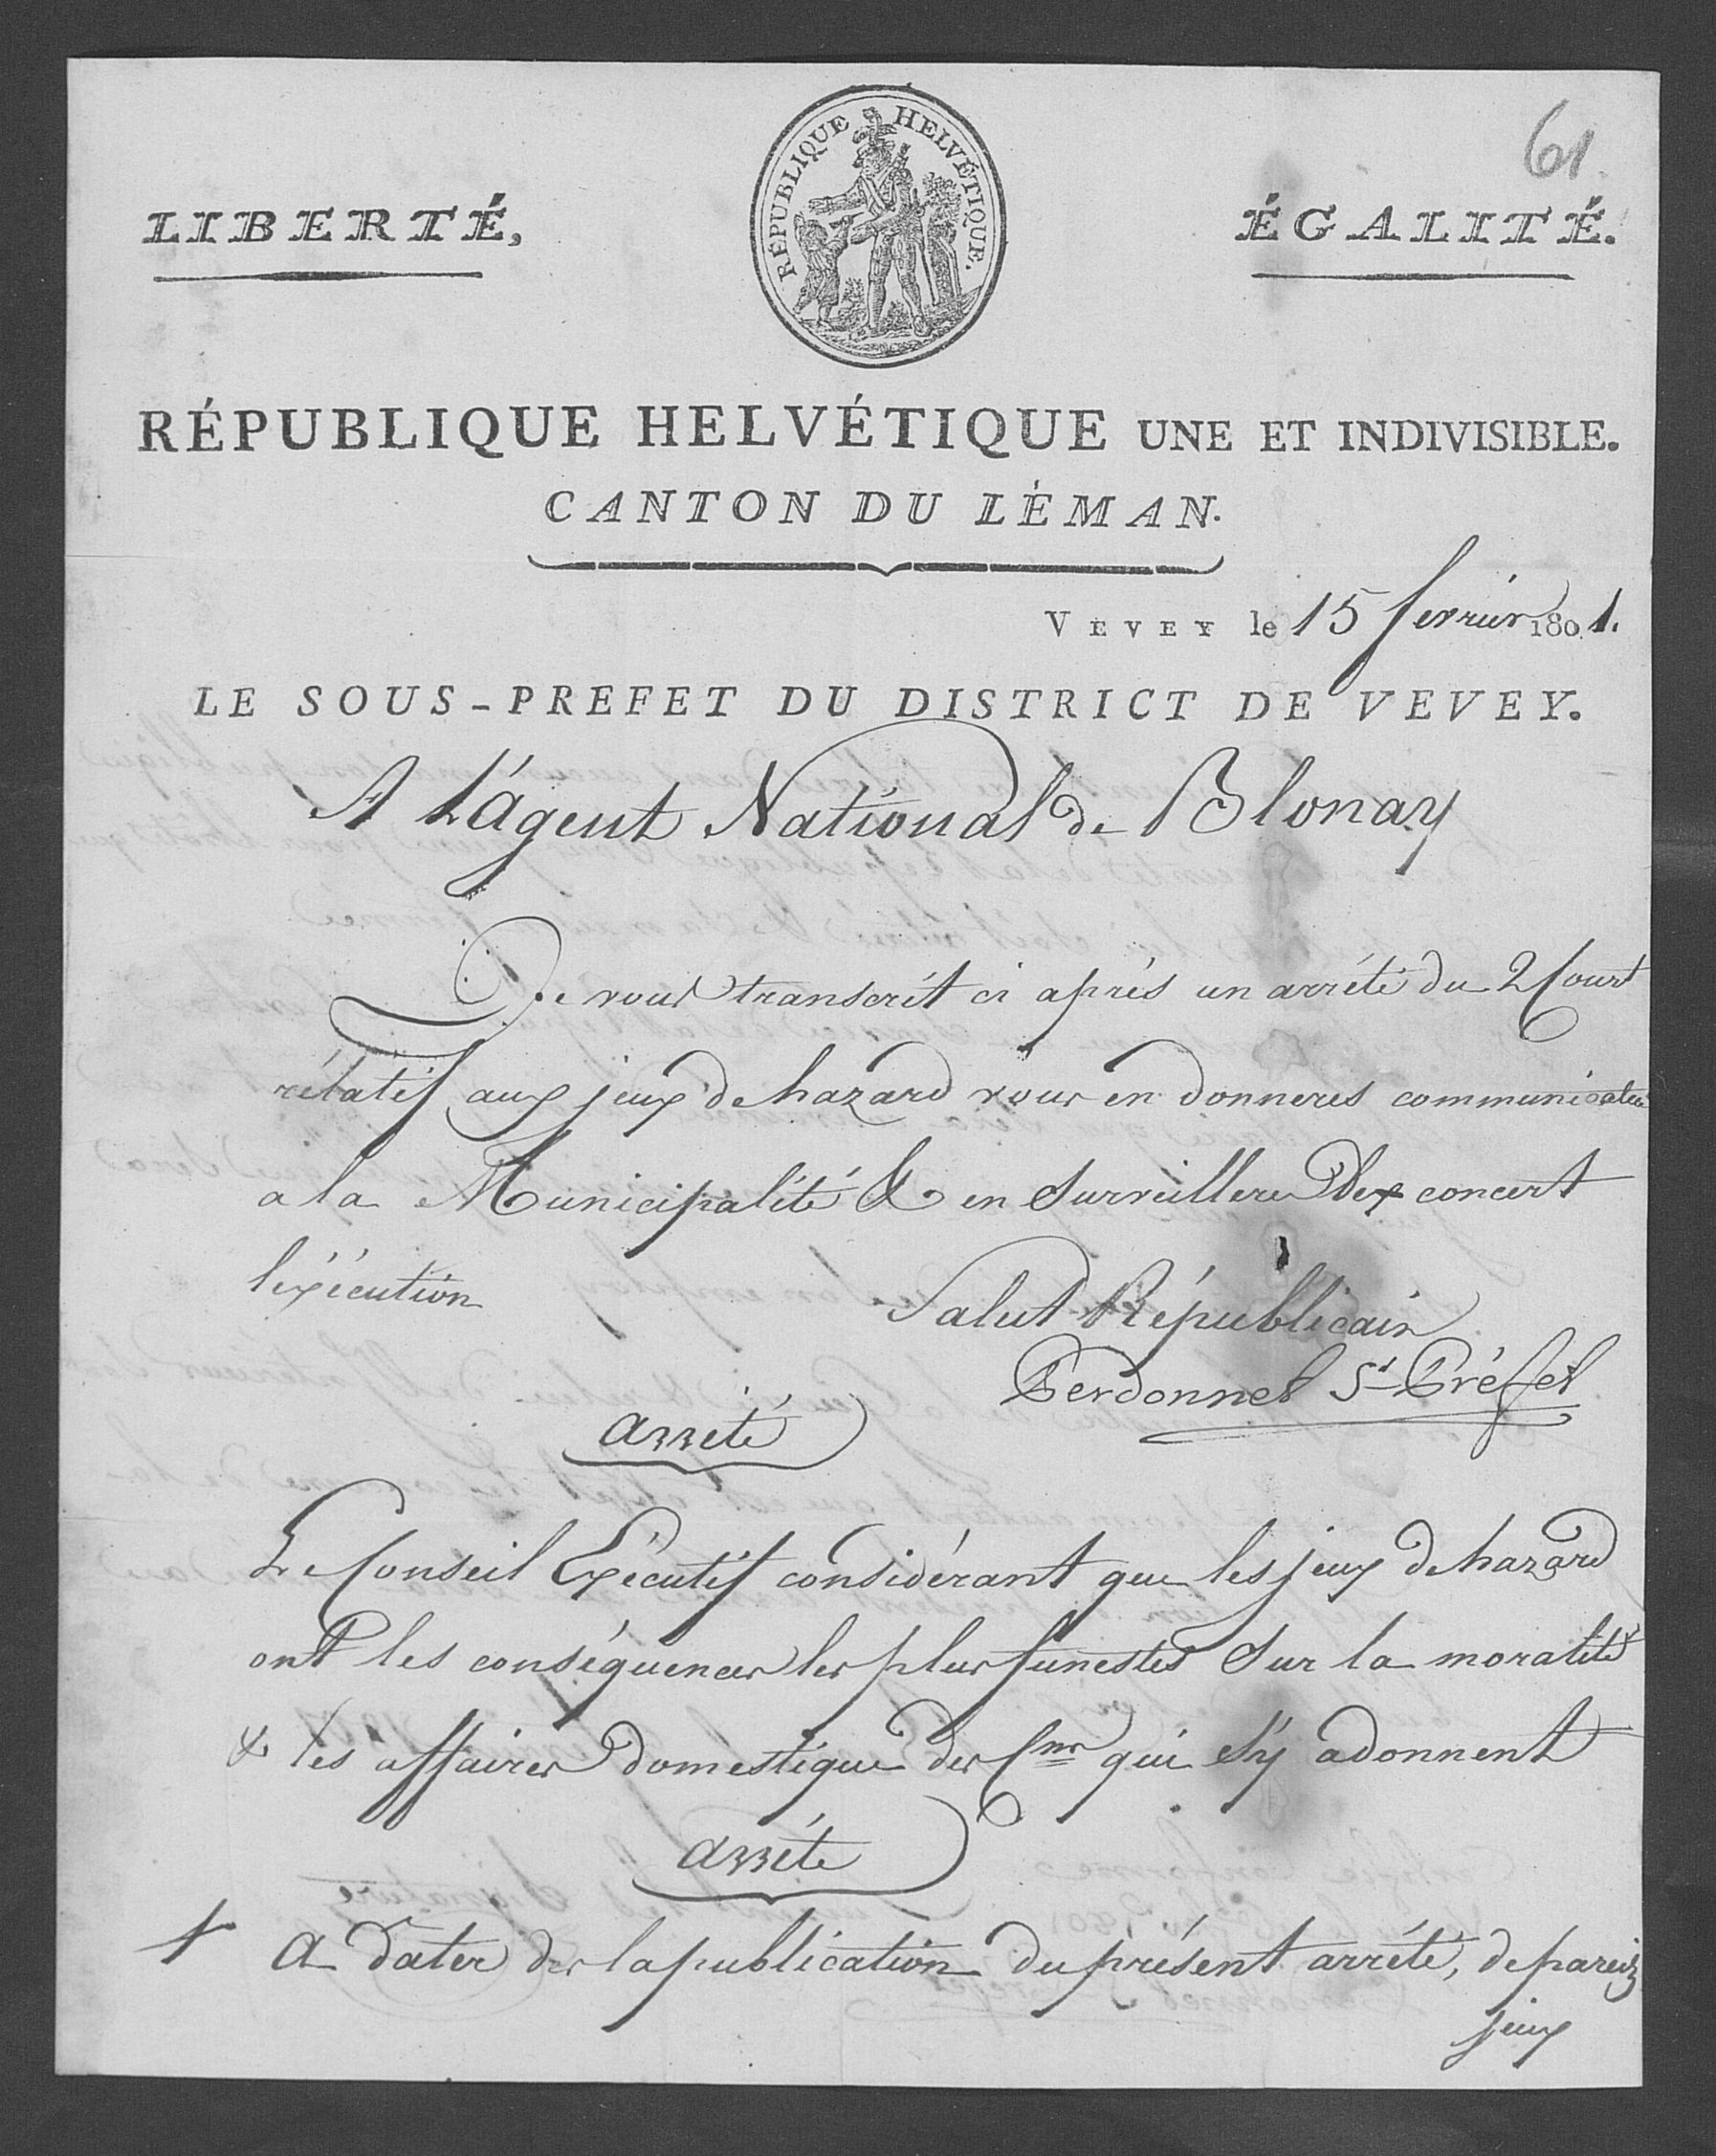 61.
RÉPUBLIQUE HELVÉTIQUE.
LIBERTÉ,
ÉGALITÉ.
RÉPUBLIQUE HELVÉTIQUE UNE ET INDIVISIBLE.
CANTON DU LÉMAN.
VEVEY le 15 fevrier 1801.
LE SOUS-PREFET DU DISTRICT DE VEVEY.
A L'agent National de Blonay
Je vous transcrit ci après un arrété du 2 Court
rélatif aux jeux de hazard vous en donneres
a la Municipalité & en Surveilleres concert
l'exécution
Salut Républicain
Perdonnet St Préfet
arreté
Le Conseil Exécutif considérant que les jeux de hazard
ont les conséquences les plus funestes Sur la moralité
& les affaires domestique des Cns qui s'y adonnent
arréte
1 a dater de la publication du présent arrété, de pareils
jeux